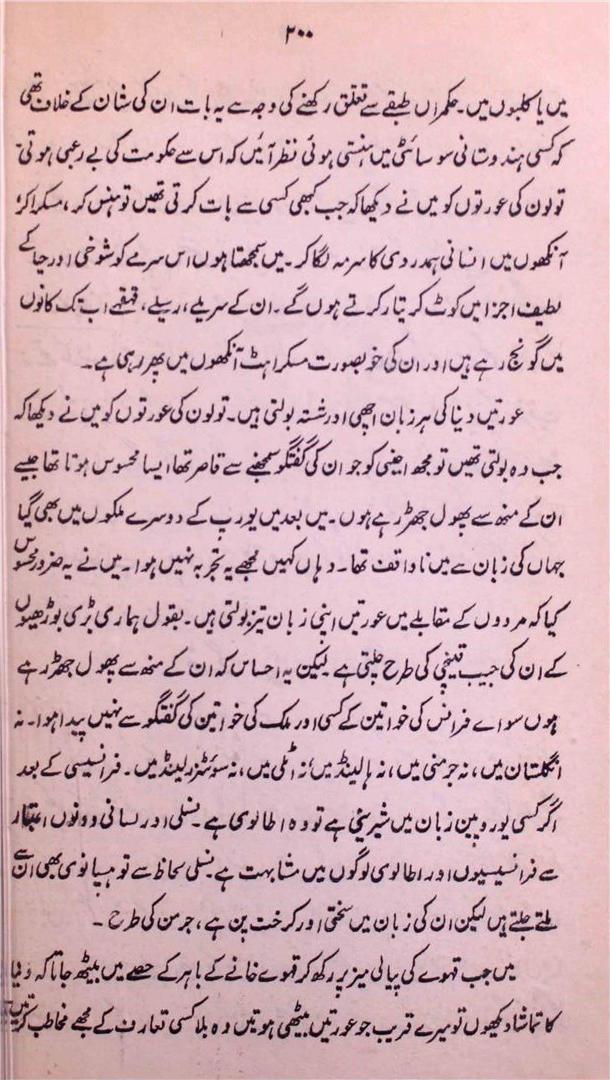 ۲۰۰
میں یا کلبوں میں۔ حکمراں طبقے سے تعلق رکھنے کی وجہ سے یہ بات ان کی شان کے خلاف تھی
کہ کسی ہندوستانی سوسائٹی میں ہنستی ہوئی نظر آئیں کہ اس سے حکومت کی بے رعبی ہوتی۔
تولون کی عورتوں کو میں نے دیکھا کہ جب کبھی کسی سے بات کرتی تھیں تو ہنس کر، مسکرا کر،
آنکھوں میں انسانی ہمدردی کا سرمہ لگا کر۔ میں سمجھتا ہوں اس سرمے کو شوخی اور حیا کے
لطیف اجزا میں کوٹ کر تیار کرتے ہوں گے۔ ان کے سریلے، رسیلے، قہقہے اب تک کانوں
میں گونج رہے ہیں اور ان کی خوبصورت مسکراہٹ آنکھوں میں پھر رہی ہے۔
عورتیں دنیا کی ہر زبان اچھی اور شستہ بولتی ہیں۔ تولون کی عورتوں کو میں نے دیکھا کہ
جب وہ بولتی تھیں تو مجھ اجنبی کو جو ان کی گفتگو سمجھنے سے قاصر تھا ایسا محسوس ہوتا تھا جیسے
ان کے منھ سے پھول جھڑ رہے ہوں۔ میں بعد میں یورپ کے دوسرے ملکوں میں بھی گیا
جہاں کی زبان سے میں ناواقف تھا۔ وہاں کہیں مجھے یہ تجربہ نہیں ہوا۔ میں نے یہ ضرور محسوس
کیا کہ مردوں کے مقابلے میں عورتیں اپنی زبان تیز بولتی ہیں۔ بقول ہماری بڑی بوڑھیوں
کے ان کی جیب قینچی کی طرح چلتی ہے لیکن یہ احساس کہ ان کے منھ سے پھول جھڑ رہے
ہوں سوائے فرانس کی خواتین کے کسی اور ملک کی خواتین کی گفتگو سے نہیں پیدا ہوا۔ نہ
انگلستان میں، نہ جرمنی میں، نہ ہالینڈ میں، نہ اٹلی میں، نہ سوئٹزرلینڈ میں۔ فرانسیسی کے بعد
اگر کسی یوروپین زبان میں شیرینی ہے تو وہ اطالوی ہے۔ نسلی اور لسانی دونوں اعتبار
سے فرانسیسیوں اور اطالوی لوگوں میں مشابہت ہے۔ نسلی لحاظ سے تو ہسپانوی بھی ان سے
ملتے جلتے ہیں لیکن ان کی زبان میں سختی اور کرخت پن ہے، جرمن کی طرح۔
میں جب قہوے کی پیالی میز پر رکھ کر قہوے خانے کے باہر کے حصے میں بیٹھ جاتا کہ دنیا
کا تماشا دیکھوں تو میرے قریب جو عورتیں بیٹھی ہوتیں وہ بلا کسی تعارف کے مجھے مخاطب کرتیں